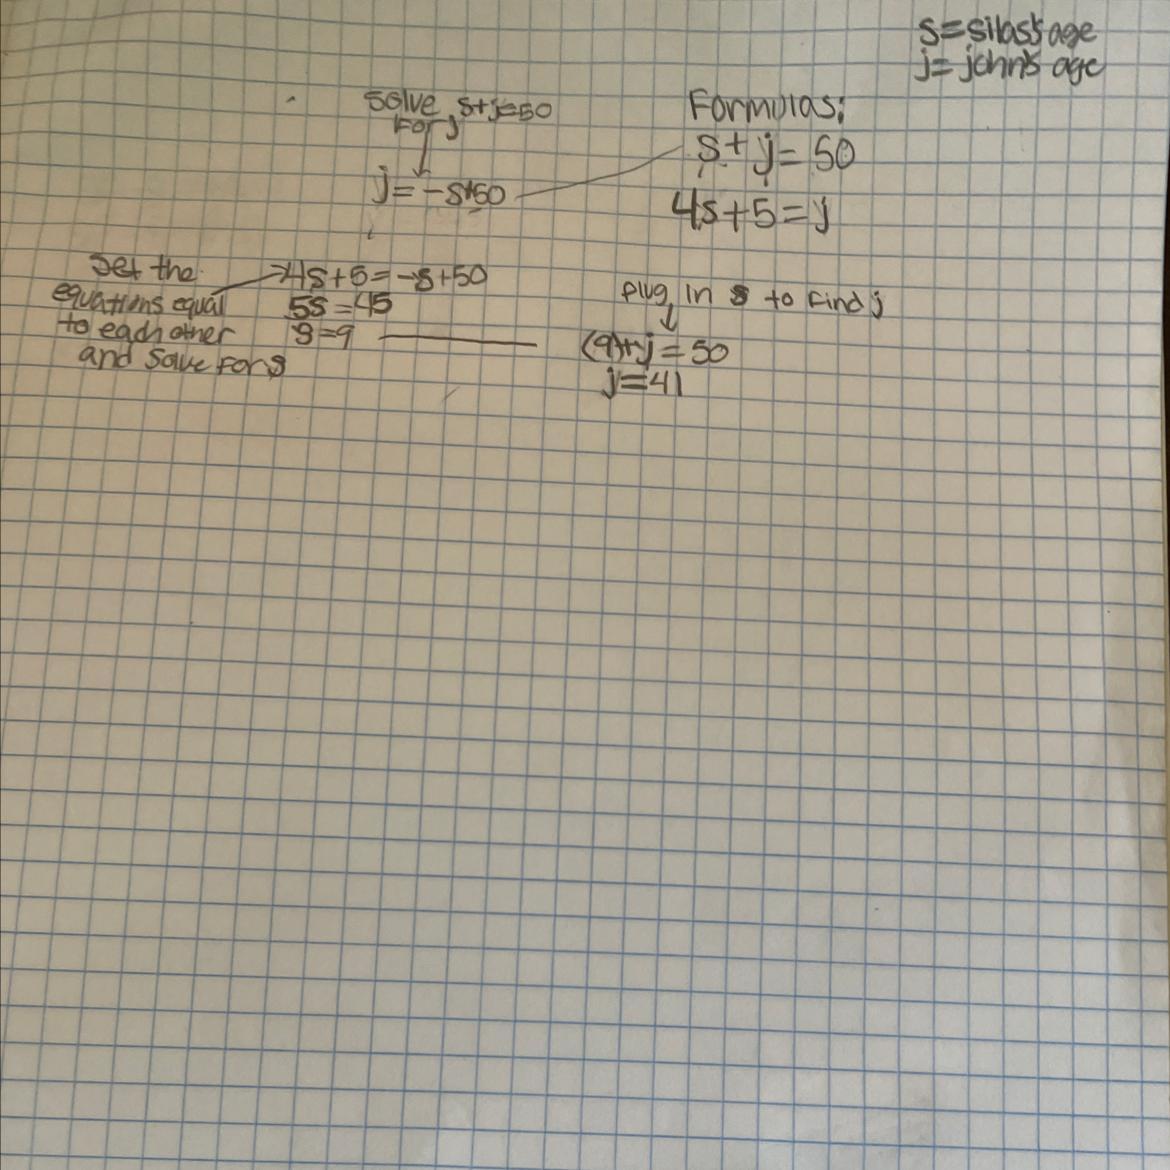 s=silas's age
j=john's age
Solve s+j=50
For j
j=-s+50
Formulas:
s+j=50
4s+5=j
Set the
equations equal
to each other
and solve for s
4s+5=-s+50
5s=45
s=9
plug in s to find j
(9)+j=50
j=41